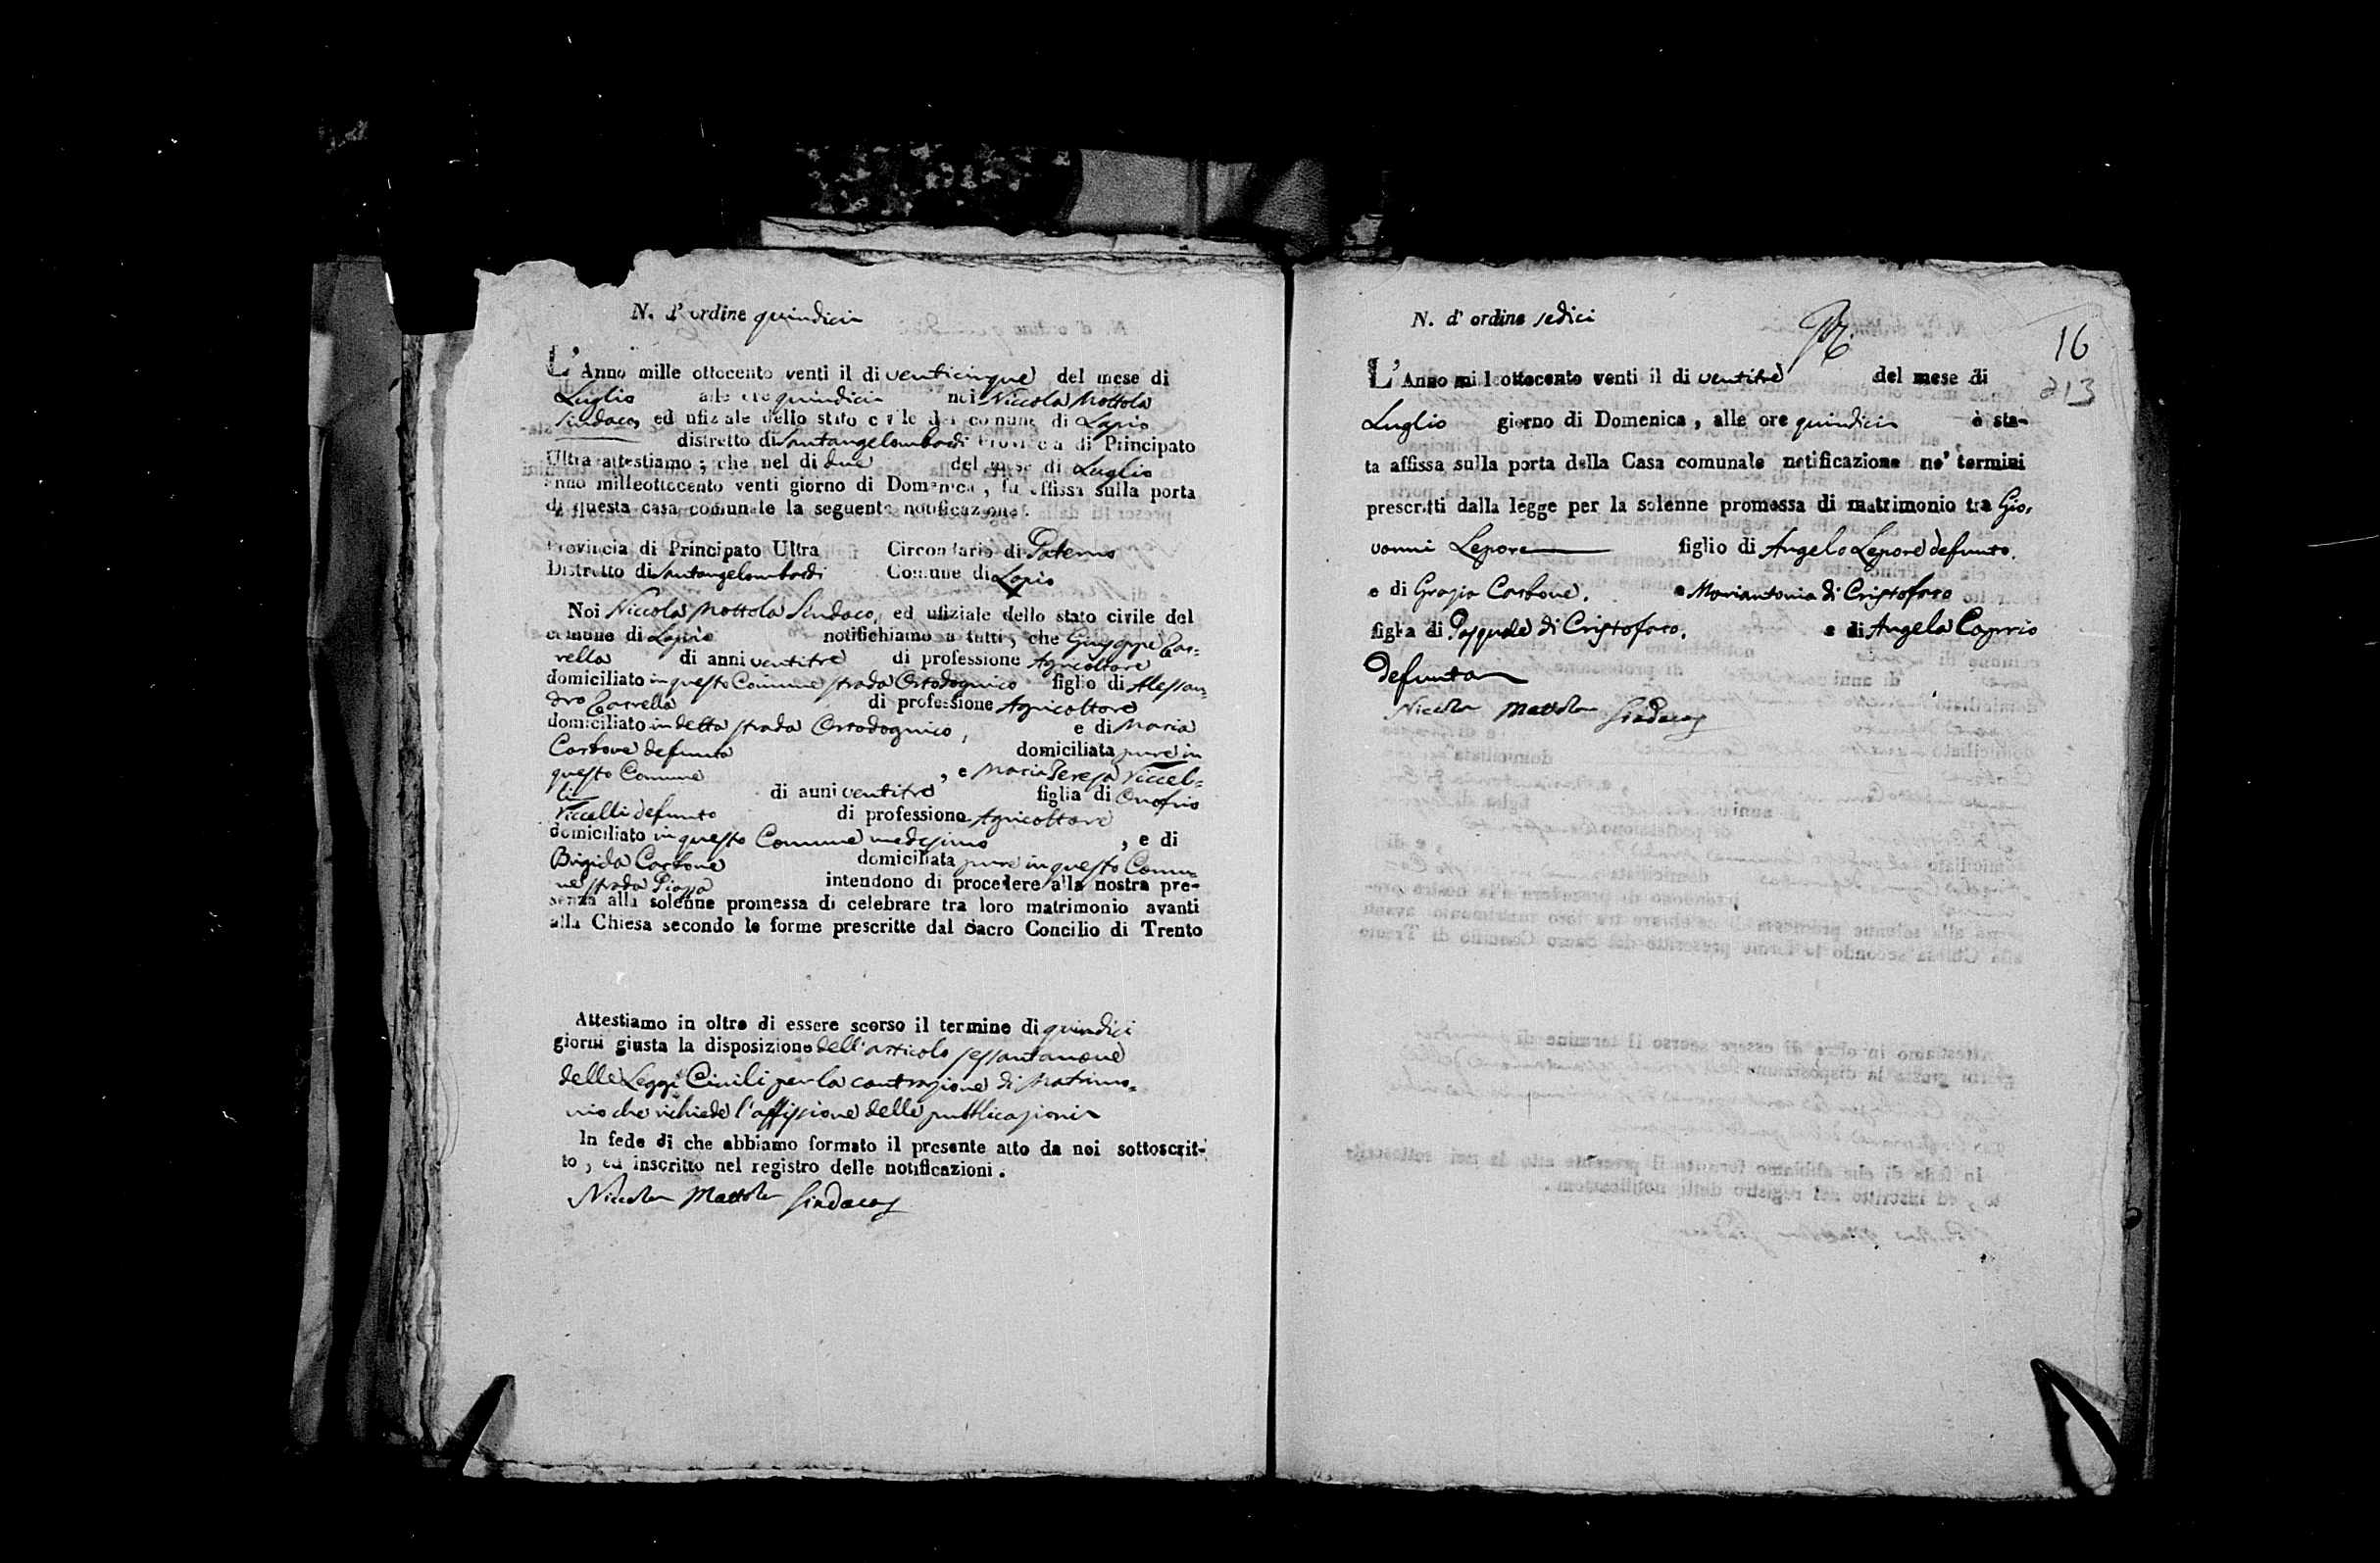 N. d' ordine quindici
L' Anno mille ottocento venti il di venticinque del mese di
Luglio alle ore quindici noi Niccola Mottola
Sindaco, ed ufiziale dello stato civile del comune di Lapio
distretto di Santangelombardi Provincia di Principato
Ultra attestiamo; che nel di due del mese di Luglio
anno milleottocento venti giorno di Domenica, fu affissa sulla porta
di questa casa comunale la seguente notificazione.
Provincia di Principato Ultra Circondario di Paterno
Distretto di Santangelombardi Comune di Lapio
Noi Niccola Mottola Sindaco, ed ufiziale dello stato civile del
comune di Lapio notifichiamo a tutti, che Giuseppe Zar=
rella di anni ventitre di professione Agricoltore
domiciliato in questo Comune strada Ortodognico figlio di Alessan=
dro Zarrella di professione Agricoltore
domiciliato in detta strada Ortodognico, e di Maria
Carbone defunta domiciliata pure in
questo Comune, e Maria Teresa Viccel=
li di anni ventitre figlia di Onofrio
Viccelli defunto di professione Agricoltore
domiciliato in questo Comune medesimo, e di
Brigida Carbone domiciliata pure in questo Comu=
ne strada Piazza intendono di procedere alla nostra pre-
senza alla solenne promessa di celebrare tra loro matrimonio avanti
alla Chiesa secondo le forme prescritte dal Sacro Concilio di Trento
Attestiamo in oltre di essere scorso il termine di quindici
giorni giusta la disposizione dell'articolo sessantanove
delle Leggi Civili per la contrazione di Matrimo=
nio che richiede l'affissione delle pubblicazioni
In fede di che abbiamo formato il presente atto da noi sottoscrit-
to, ed inscritto nel registro delle notificazioni.
Niccola Mottola Sindaco
N. d' ordine sedici
16
213
L' Anno mille ottocento venti il di ventitre del mese di
Luglio giorno di Domenica, alle ore quindici è sta-
ta affissa sulla porta della Casa comunale notificazione ne' termini
prescritti dalla legge per la solenne promessa di matrimonio tra Gio=
vanni Lepore figlio di Angelo Lepore defunto.
e di Grazia Carbone. e Mariantonia di Cristofaro
figlia di Pasquale di Cristofaro. e di Angela Caprio
defunta
Niccola Mottola Sindaco